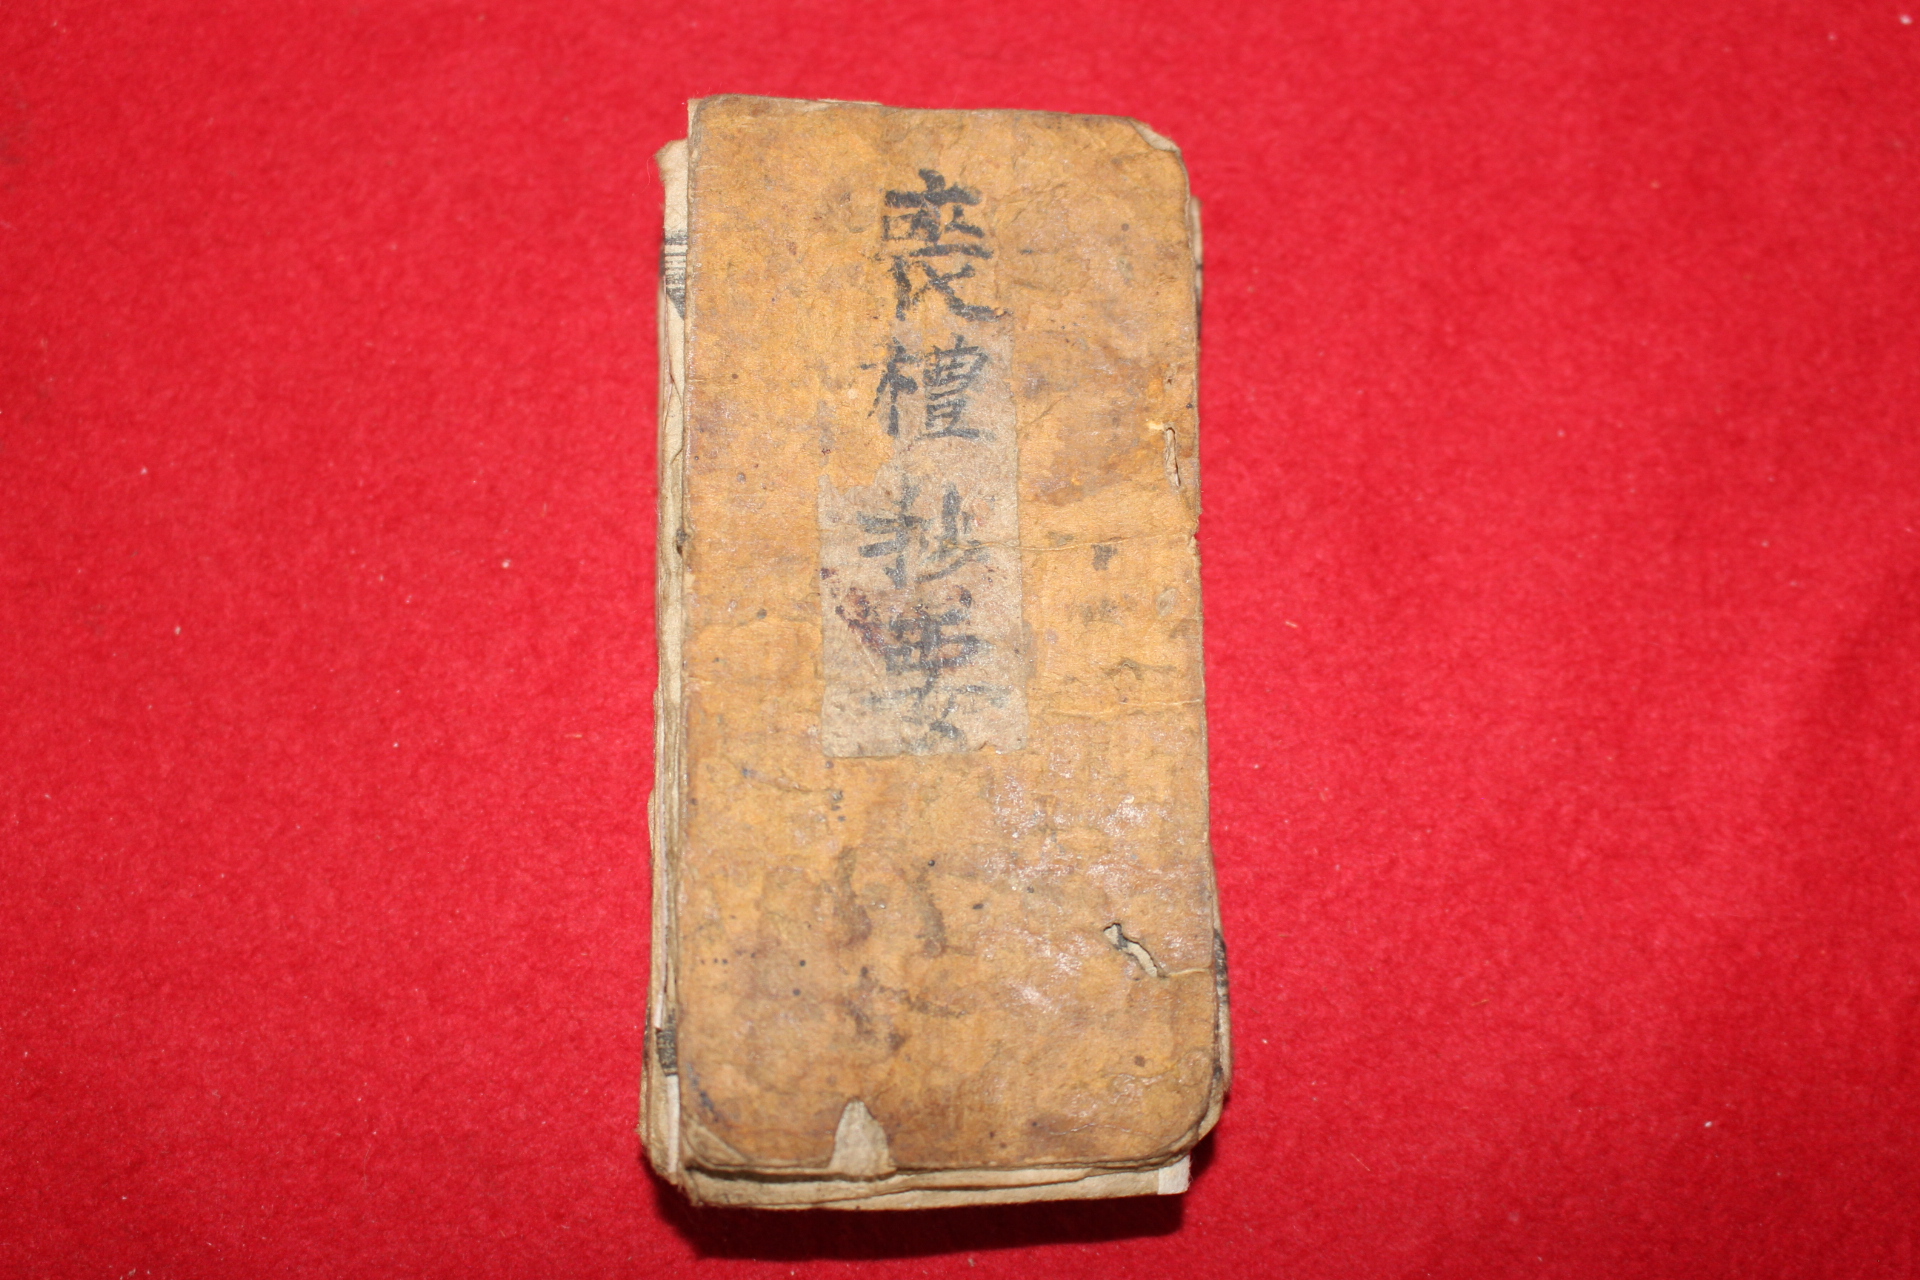 喪禮抄要